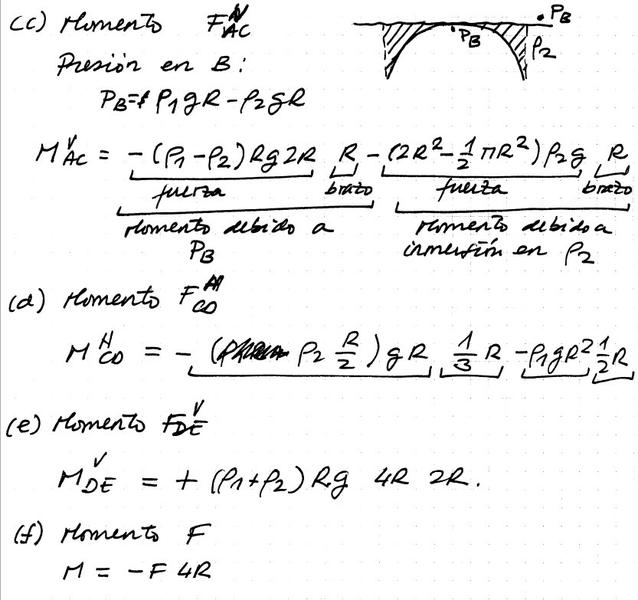 (c) Momento F_AC^V
P_B
P_B
ρ2
Presión en B:
P_B = ρ1gR - ρ2gR
M_AC^V = -(ρ1-ρ2)Rg2R R - (2R² - 1/2 πR²)ρ2g R
fuerza brazo fuerza brazo
Momento debido a P_B
Momento debido a inmersión en ρ2
(d) Momento F_CD^H
M_CD^H = - (ρ2 R/2)gR 1/3 R - ρ1gR² 1/2 R
(e) Momento F_DE^V
M_DE^V = + (ρ1+ρ2)Rg 4R 2R.
(f) Momento F
M = -F 4R